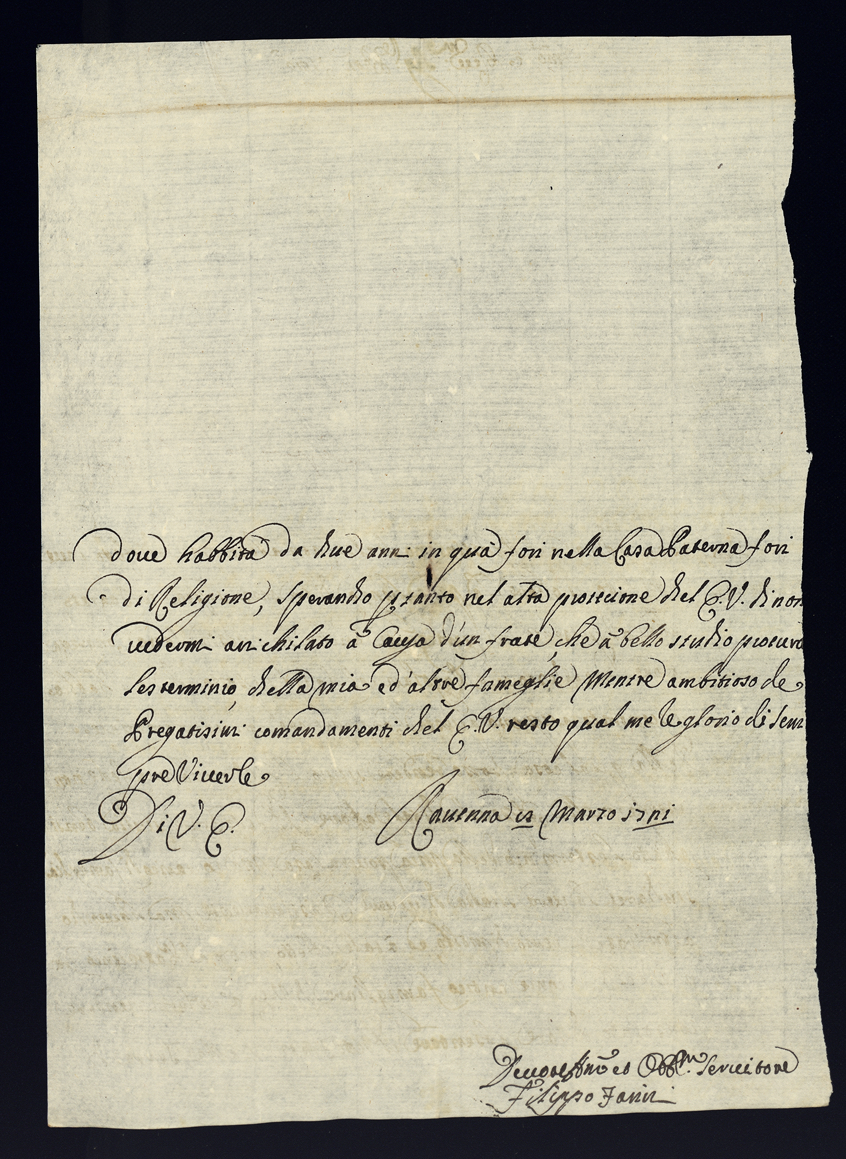 doue habbita da due anni in quà fori nella Casa Paterna fori
di Religione, sperando ptanto nel alta protecione del E.V. di non
uedermi anichilato à Causa d'un frate che à bello studio procura
lesterminio della mia ed'altre fameglie Mentre ambitioso de
Pregatisimi comandamenti del E.V. resto qual me le glorio di sem
pre Viuerle
Di V. E.
Rauenna Marzo
et Obb.mo Seruitore
Filippo